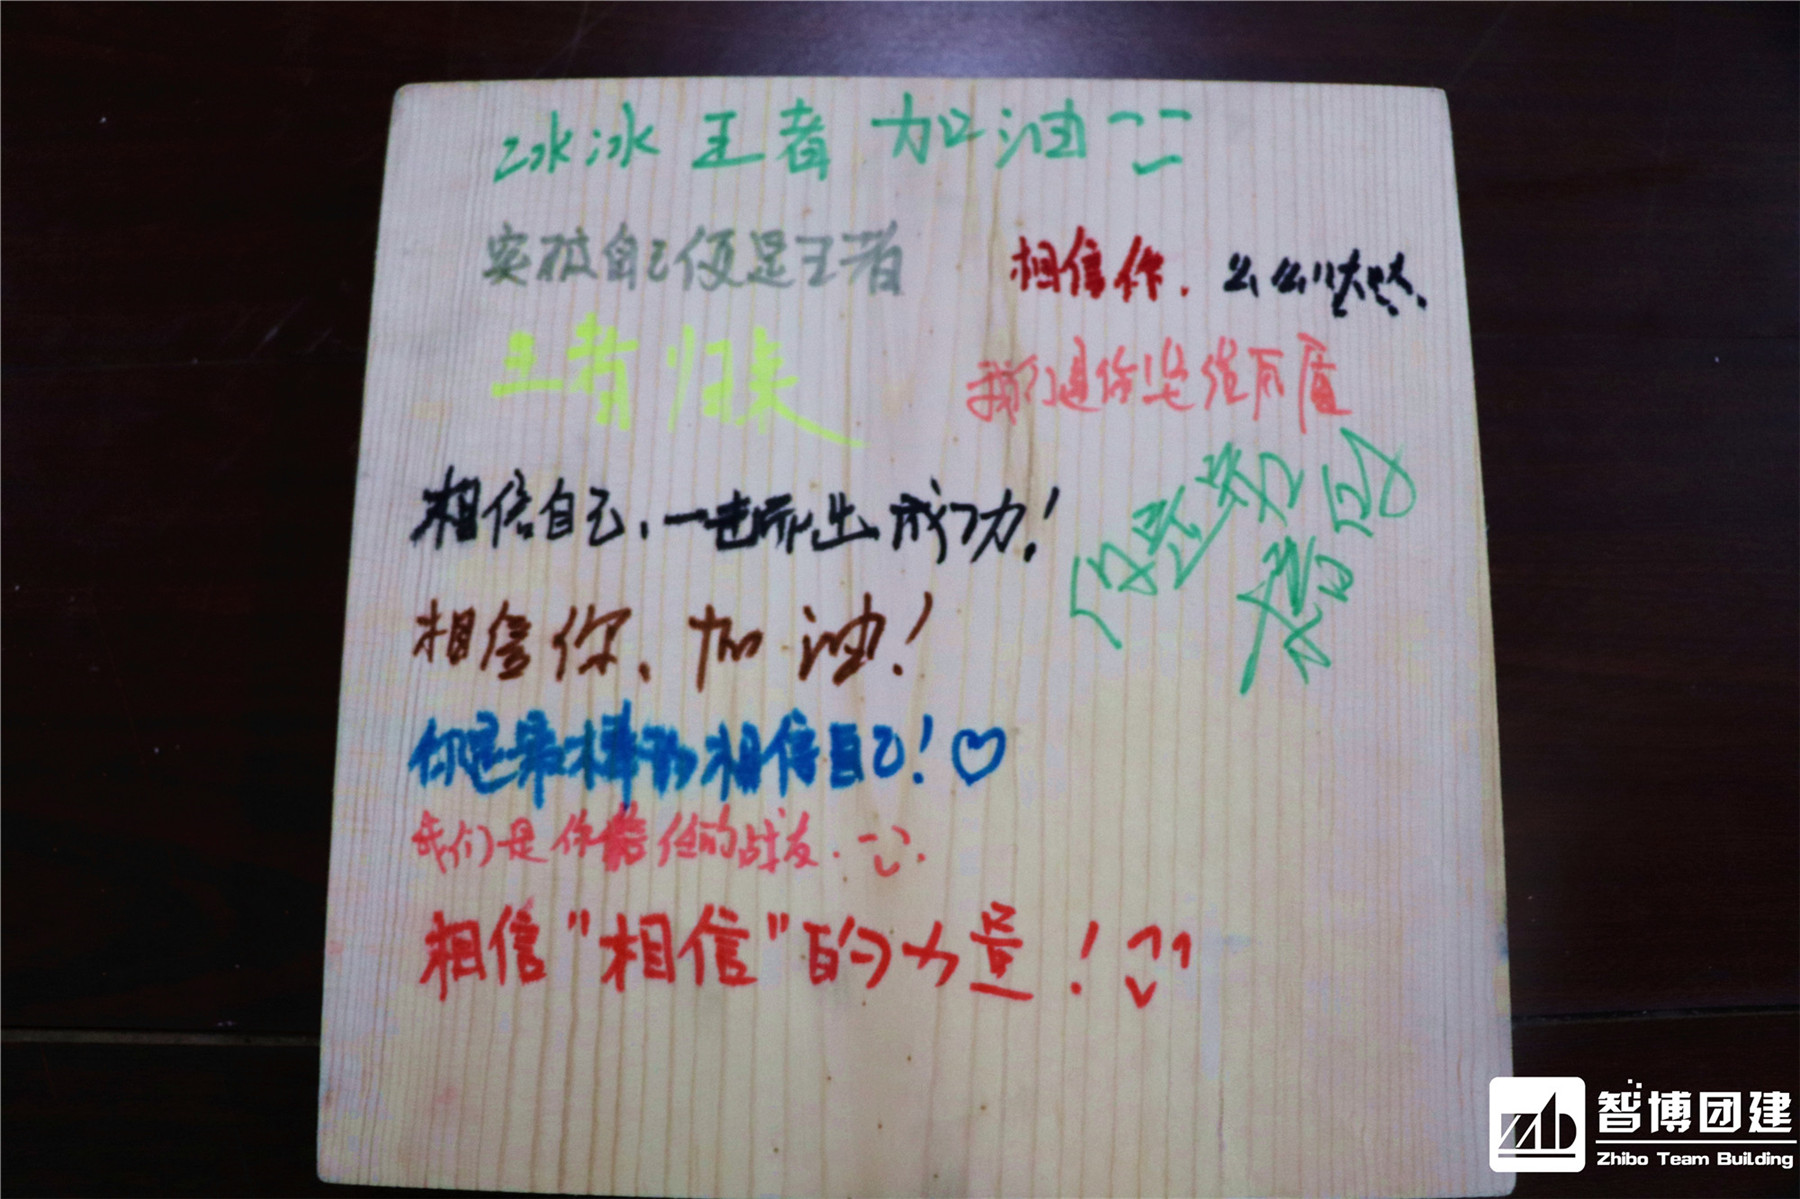 冰冰 王者 加油
突破自己便是王者
相信你.
王者归来
我们是你坚强后盾
相信自己，一走而出成功！
相信你、加油！
你是最棒的相信自己！♡
我们是你信任的战友.
相信"相信"的力量！
智博团建
Zhibo Team Building